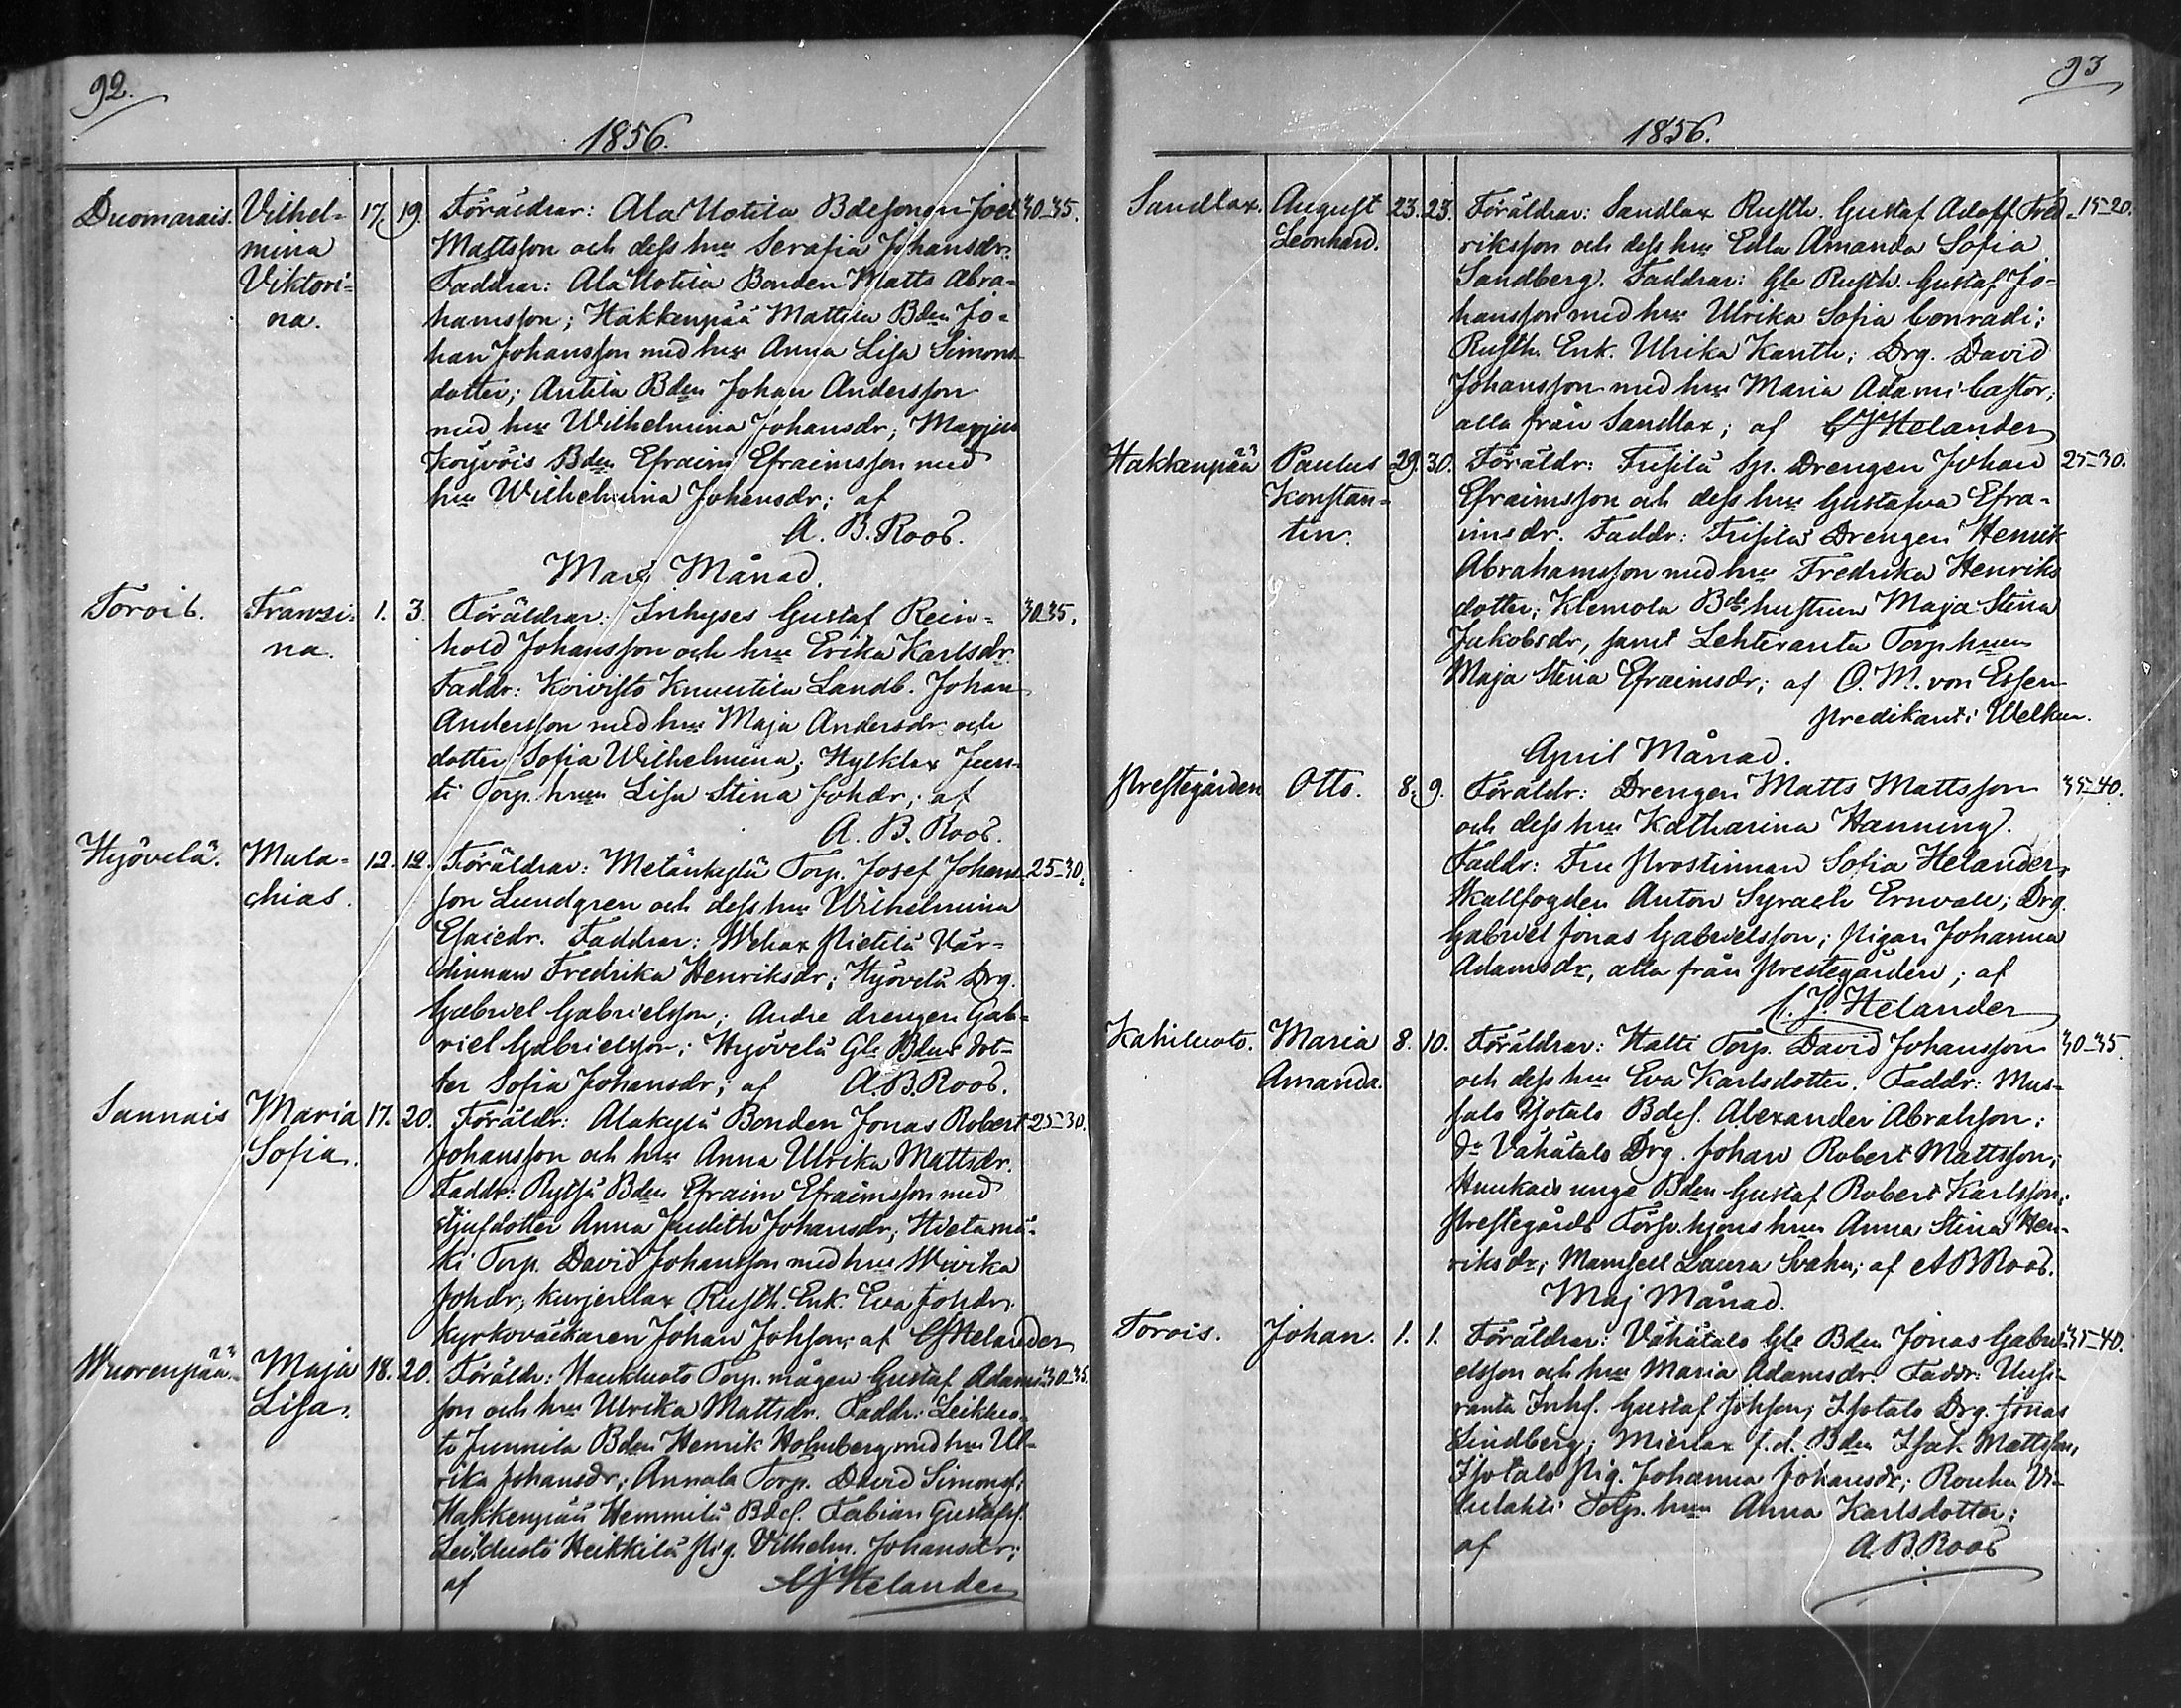 92.
1856.
Duomarais. Vilhel- 17. 19. Föräldrar: Ala Uotila Bdesonen Joel 30-35.
mina Mattsson och dess hru Serafia Johansdr.
Viktori- Faddrar: Ala Uotila Bonden Matts Abra-
na. hamsson; Hakkenpää Mattila Bden Jo-
han Johansson med hru Anna Lisa Simons-
dotter; Antila Bden Johan Andersson
med hru Wilhelmina Johansdr;
Köyvöis Bden Efraim Efraimsson med
hru Wilhelmina Johansdr; af
A. B. Roos.
Mars Månad.
Torois. Fransi- 1. 3. Föräldrar: Inhyses Gustaf Rein- 30-35.
na. hold Johansson och hru Erika Karlsdr.
Faddr: Koivisto Knuutila Landb. Johan
Andersson med hru Maja Andersdr och
dotter Sofia Wilhelmina; Hylklax Jun-
ti Torp. hrun Lisa Stina Johdr; af
A. B. Roos.
Hyövelä. Mala- 12. 12. Föräldrar: Metänkylä Torp. Josef Johans- 25-30.
chias. son Lundgren och dess hru Wilhelmina
Esaiedr. Faddrar: Wehax Pietilä Vär-
dinnan Fredrika Henriksdr; Hyövelä Drg.
Gabriel Gabrielsson; Andre drengen Gab-
riel Gabrielsson; Hyövelä Gle Bdens dot-
ter Sofia Johansdr; af A. B. Roos.
Sannais Maria 17. 20. Föräldr: Alakylä Bonden Jonas Robert 25-30.
Sofia. Johansson och hru Anna Ulrika Mattsdr.
Faddr: Rytsä Bden Efraim Efraimsson med
stjufdotter Anna Judith Johansdr; Hietamä-
ki Torp. David Johansson med hru Wivika
Johdr; Kurjenlax Rusth. Enk. Eva Johdr;
kyrkoväktaren Johan Johsson; af CJHelander
Wuorenpää. Maja 18. 20. Föräldr: Haukluoto Torp. mågen Gustaf Adams- 30-35.
Lisa. son och hru Ulrika Mattsdr. Faddr: Leikluo-
to Junnila Bden Henrik Holmberg med hru Ul-
rika Johansdr; Annala Torp. David Simonss;
Hakkenpää Hemmilä Bdes. Fabian Gustafss.
Leikluoto Heikkilä Pig. Vilhelm. Johansdr;
af CJHelander
93
1856.
Sandlax. August 23. 23. Föräldrar: Sandlax Rusth. Gustaf Adolf Fred- 15-20.
Leonhard. riksson och dess hru Edla Amanda Sofia
Sandberg. Faddrar: Gle Rusth. Gustaf Jo-
hansson med hru Ulrika Sofia Conradi;
Rusth. Enk. Ulrika Kanth; Drg. David
Johansson med hru Maria Adami Castor;
alla från Sandlax; af CJHelander
Hakkenpää Paulus 29. 30. Föräldr: Sp. Drengen Johan 25-30.
Konstan- Efraimsson och dess hru Gustafva Efra-
tin. imsdr. Faddr: Drengen Henrik
Abrahamsson med hru Fredrika Henriks
dotter; Klemola Bdehustrun Maja Stina
Jakobsdr, samt Lehtiranta Torp hrun
Maja Stina Efraimsdr; af O. W. von Essen
predikant i Welkua.
April Månad.
Prestegården Otto. 8. 9. Föräldr: Drengen Matts Mattsson 35-40.
och dess hru Katharina Hanning.
Faddr: Fru Prostinnan Sofia Helander,
Skallfogden Anton Syrach Ernvall; Drg.
Gabriel Jonas Gabrielsson; Pigan Johanna
Adamsdr, alla från Prestegården; af
C. J. Helander
Kahiluoto. Maria 8. 10. Föräldrar: Halti Torp. David Johansson 30-35.
Amanda. och dess hru Eva Karlsdotter. Faddr: Mus-
salo Isotalo Bdes. Alexander Abrahsson;
do Vähätalo Drg. Johan Robert Mattsson;
Haukais unge Bden Gustaf Robert Karlsson;
Prestegårds Försv. hjons hrun Anna Stina Hen-
riksdr; Mamsell Laura Svahn; af A B Roos.
Maj Månad.
Torois. Johan. 1. 1. Föräldrar: Vähätalo Gle Bden Jonas Gabri- 35-40.
elsson och hru Maria Adamsdr. Faddr: Uusi-
ranta Inhs. Gustaf Johsson; Isotalo Drg. Jonas
Lindberg; Mierlax f.d. Bden Isak Mattsson,
Isotalo Pig. Johanna Johansdr; Rouhu Vi-
lulahti Torp. hrun Anna Karlsdotter;
af A. B. Roos